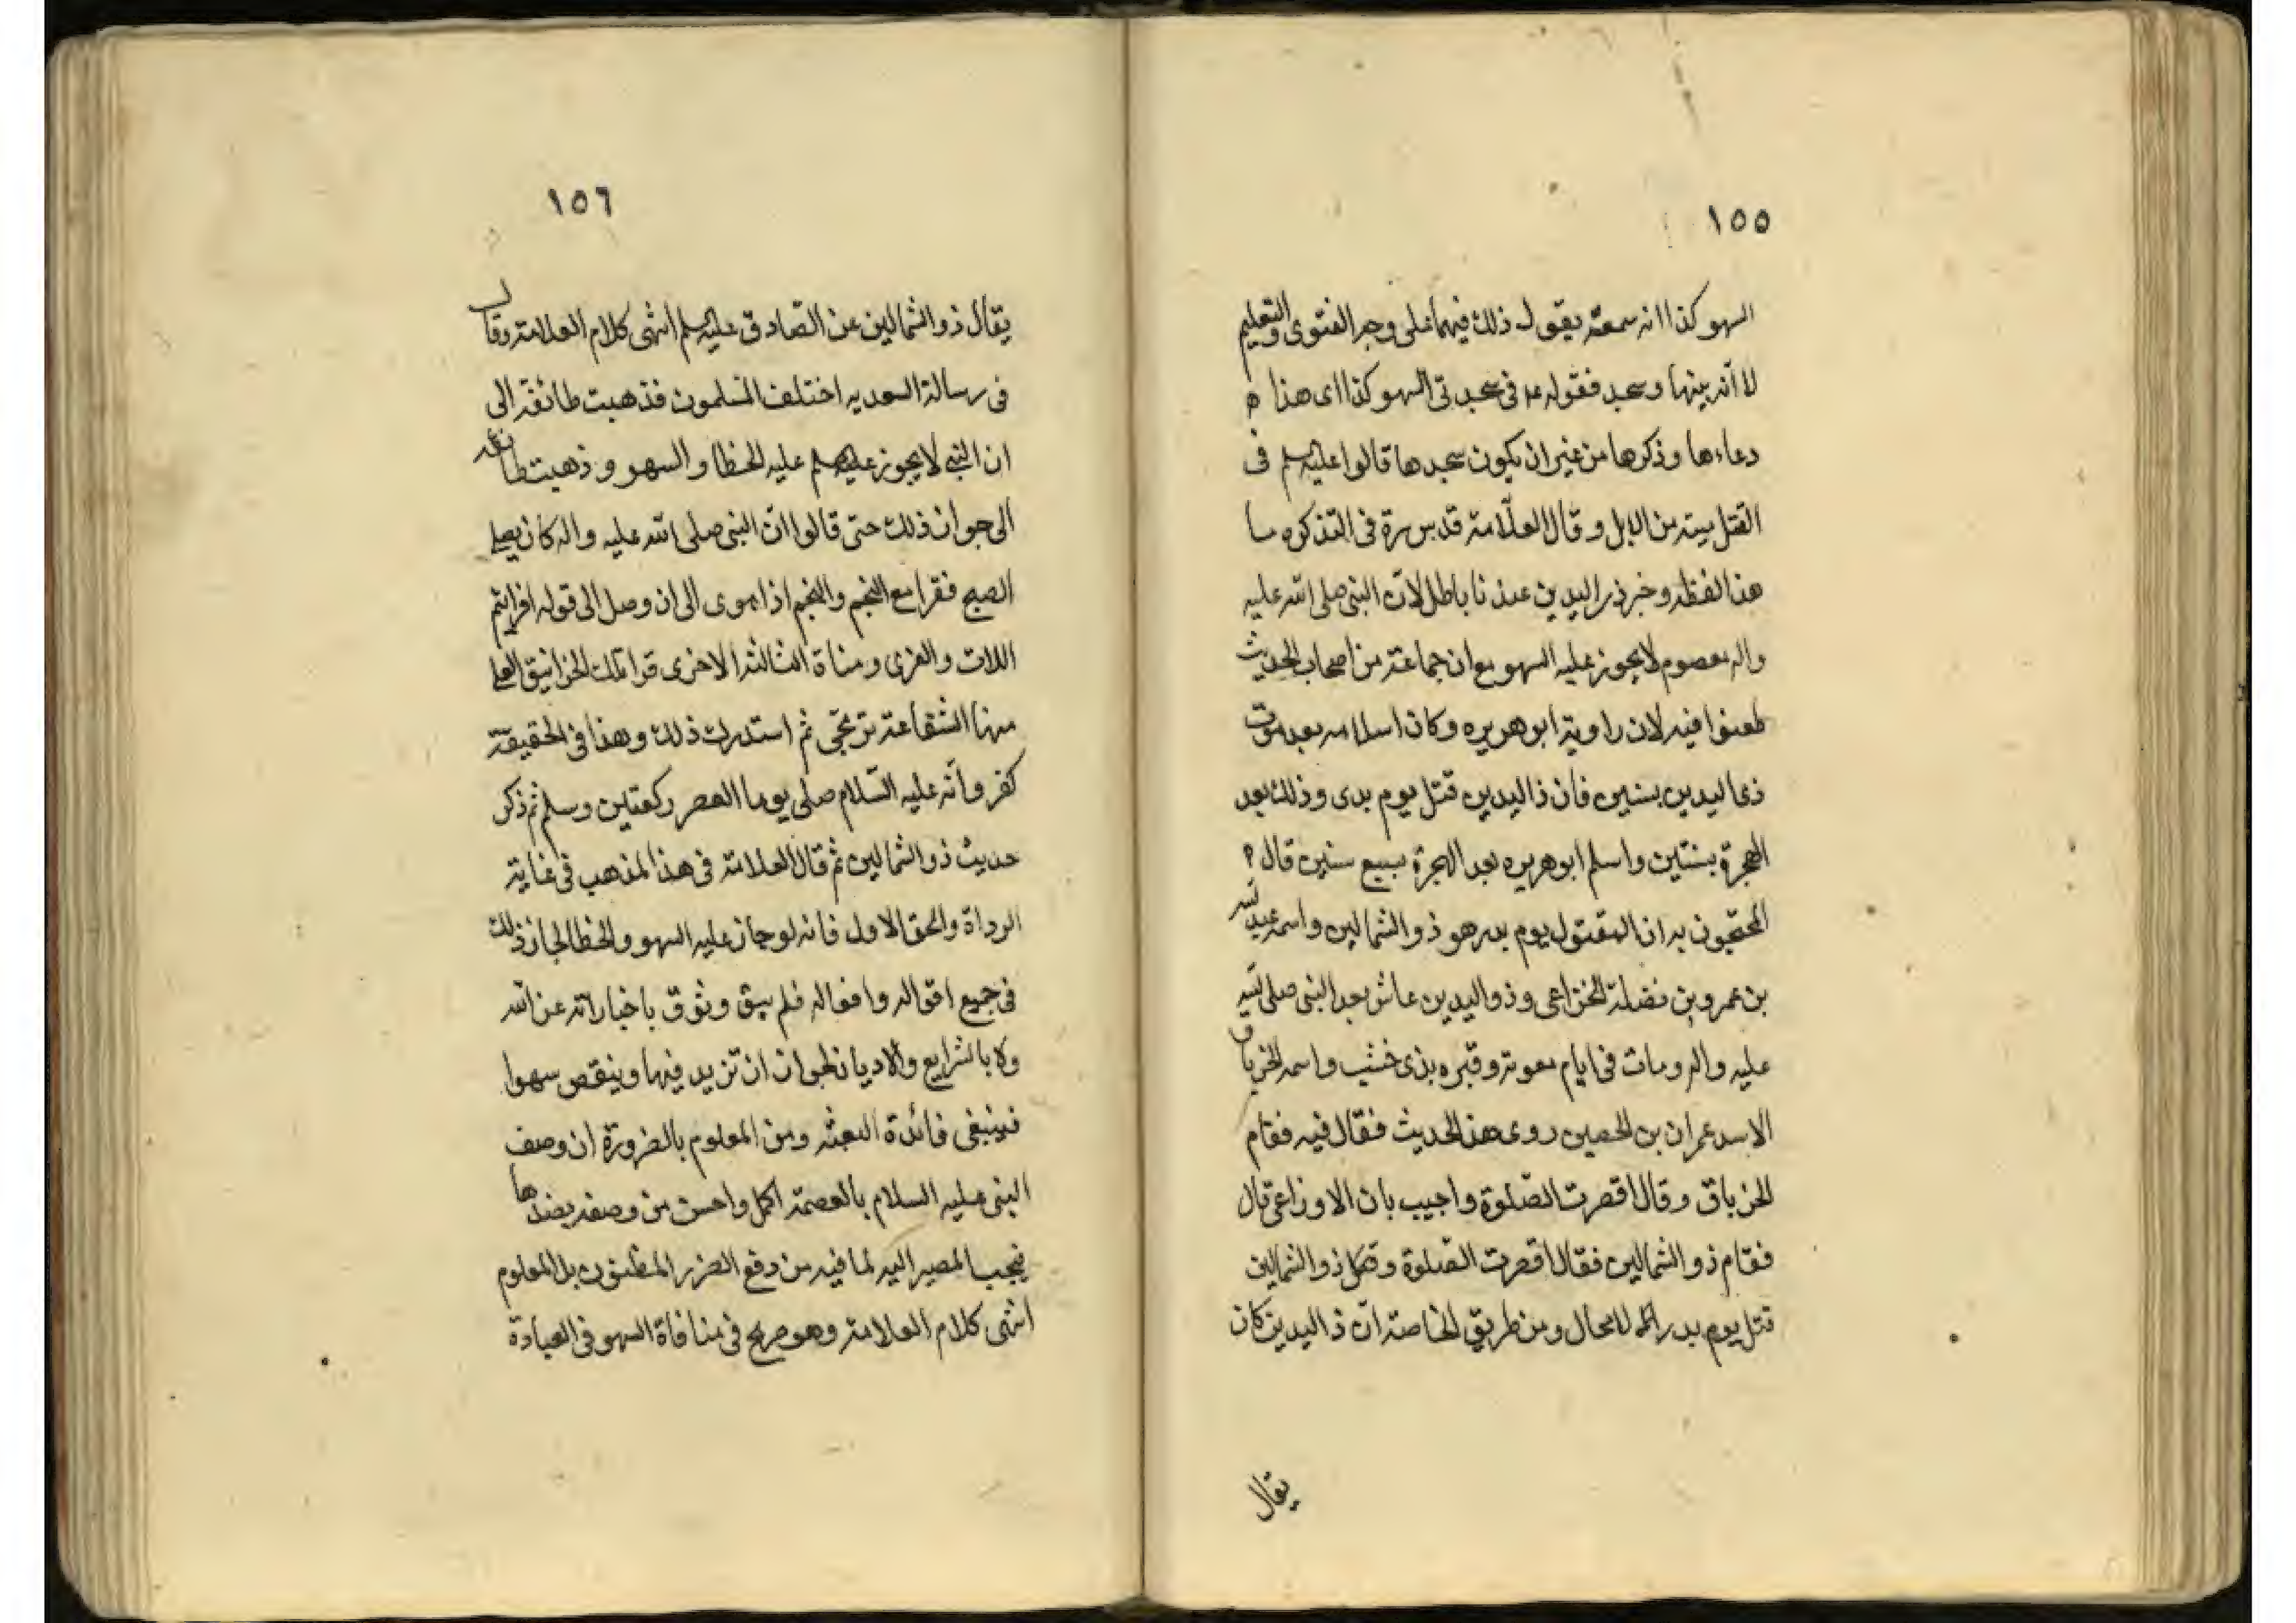 ١٥٥
السهو كذا انه سمعته يقول ذلك فيهما على وجه الفتوى والتعليم
لا انه بينها وسجد فقوله في سجدتي السهو كذا اى هذا
دعاءها وذكرها من غير ان يكون سجدها قالوا عليه سلم فى
القتل ميته من الابل وقال العلّامة قدس سرة فى التذكره ما
هذا لفظه وخبر ذى اليدين عندنا باطل لانّ النبى صلى الله عليه
واله معصوم لا يجوز عليه السهو مع ان جماعة من اصحاب الحديث
طعنوا فيه لان راوية ابو هريره وكان اسلامه بعد موت
ذى اليدين بسنين فان ذا اليدين قتل يوم بدى وذلك بعد
الهجرة بسنتين واسلم ابو هريره بعد الهجرة بسبع سنين قال
المحتجون به ان المقتول يوم بدر هو ذو الشمالين واسمه عبد الله
بن عمرو بن نضلة الخزاعى وذو اليدين عاش بعد النبى صلى الله
عليه واله ومات فى ايام معوية وقبره بذى خشب واسمه الخرباق
الاسد عمران بن الحصين روى هذا الحديث فقال فيه فقام
الخرباق وقال اقصرت الصّلوة واجيب بان الاوزاعى قال
فقام ذو الشمالين فقال اقصرت الصّلوة وذو الشمالين
قتل يوم بدر لا محال ومن طريق الخاصة انّ ذا اليدين كان
يقال
١٥٦
يقال ذو الشمالين عن الصّادق عليه سلم انتهى كلام العلامة وقال
فى رسالة السعديه اختلف المسلمون فذهبت طائفة الى
ان النبى لا يجوز عليه سلم عليه الخطا والسهو وذهبت طائفه
الى جوان ذلك حتى قالوا انّ النبى صلى الله عليه واله كان يصلى
الصبح فقرا مع النجم والنجم اذا هوى الى ان وصل الى قوله افرايتم
اللات والعزى ومناة الثالثه الاخرى قرا تلك الغرانيق العلى
منها الشفاعة ترتجى ثم استدرك ذلك وهذا فى الحقيقة
كفر وانّه عليه السّلام صلى يوما العصر ركعتين وسلم ثم ذكر
حديث ذو الشمالين ثم قال العلامة فى هذا المذهب فى غاية
الرداة والحق الاول فانه لو جاز عليه السهو والخطا لجاز ذلك
فى جميع اقواله وافعاله فلم يبق وثوق باخباراته عن الله
ولا بالشرايع والاديان لجوان ان تزيد فيها وينقص سهوا
فينبغى فائدة البعثه ومن المعلوم بالضرورة ان وصف
النبى عليه السلام بالعصمة اكمل واحسن من وصفه بضدها
فيجب المصير اليه لما فيه من دفع الضرر المظنون بل المعلوم
انتهى كلام العلامة وهو صريح فى منافاة السهو فى العبادة